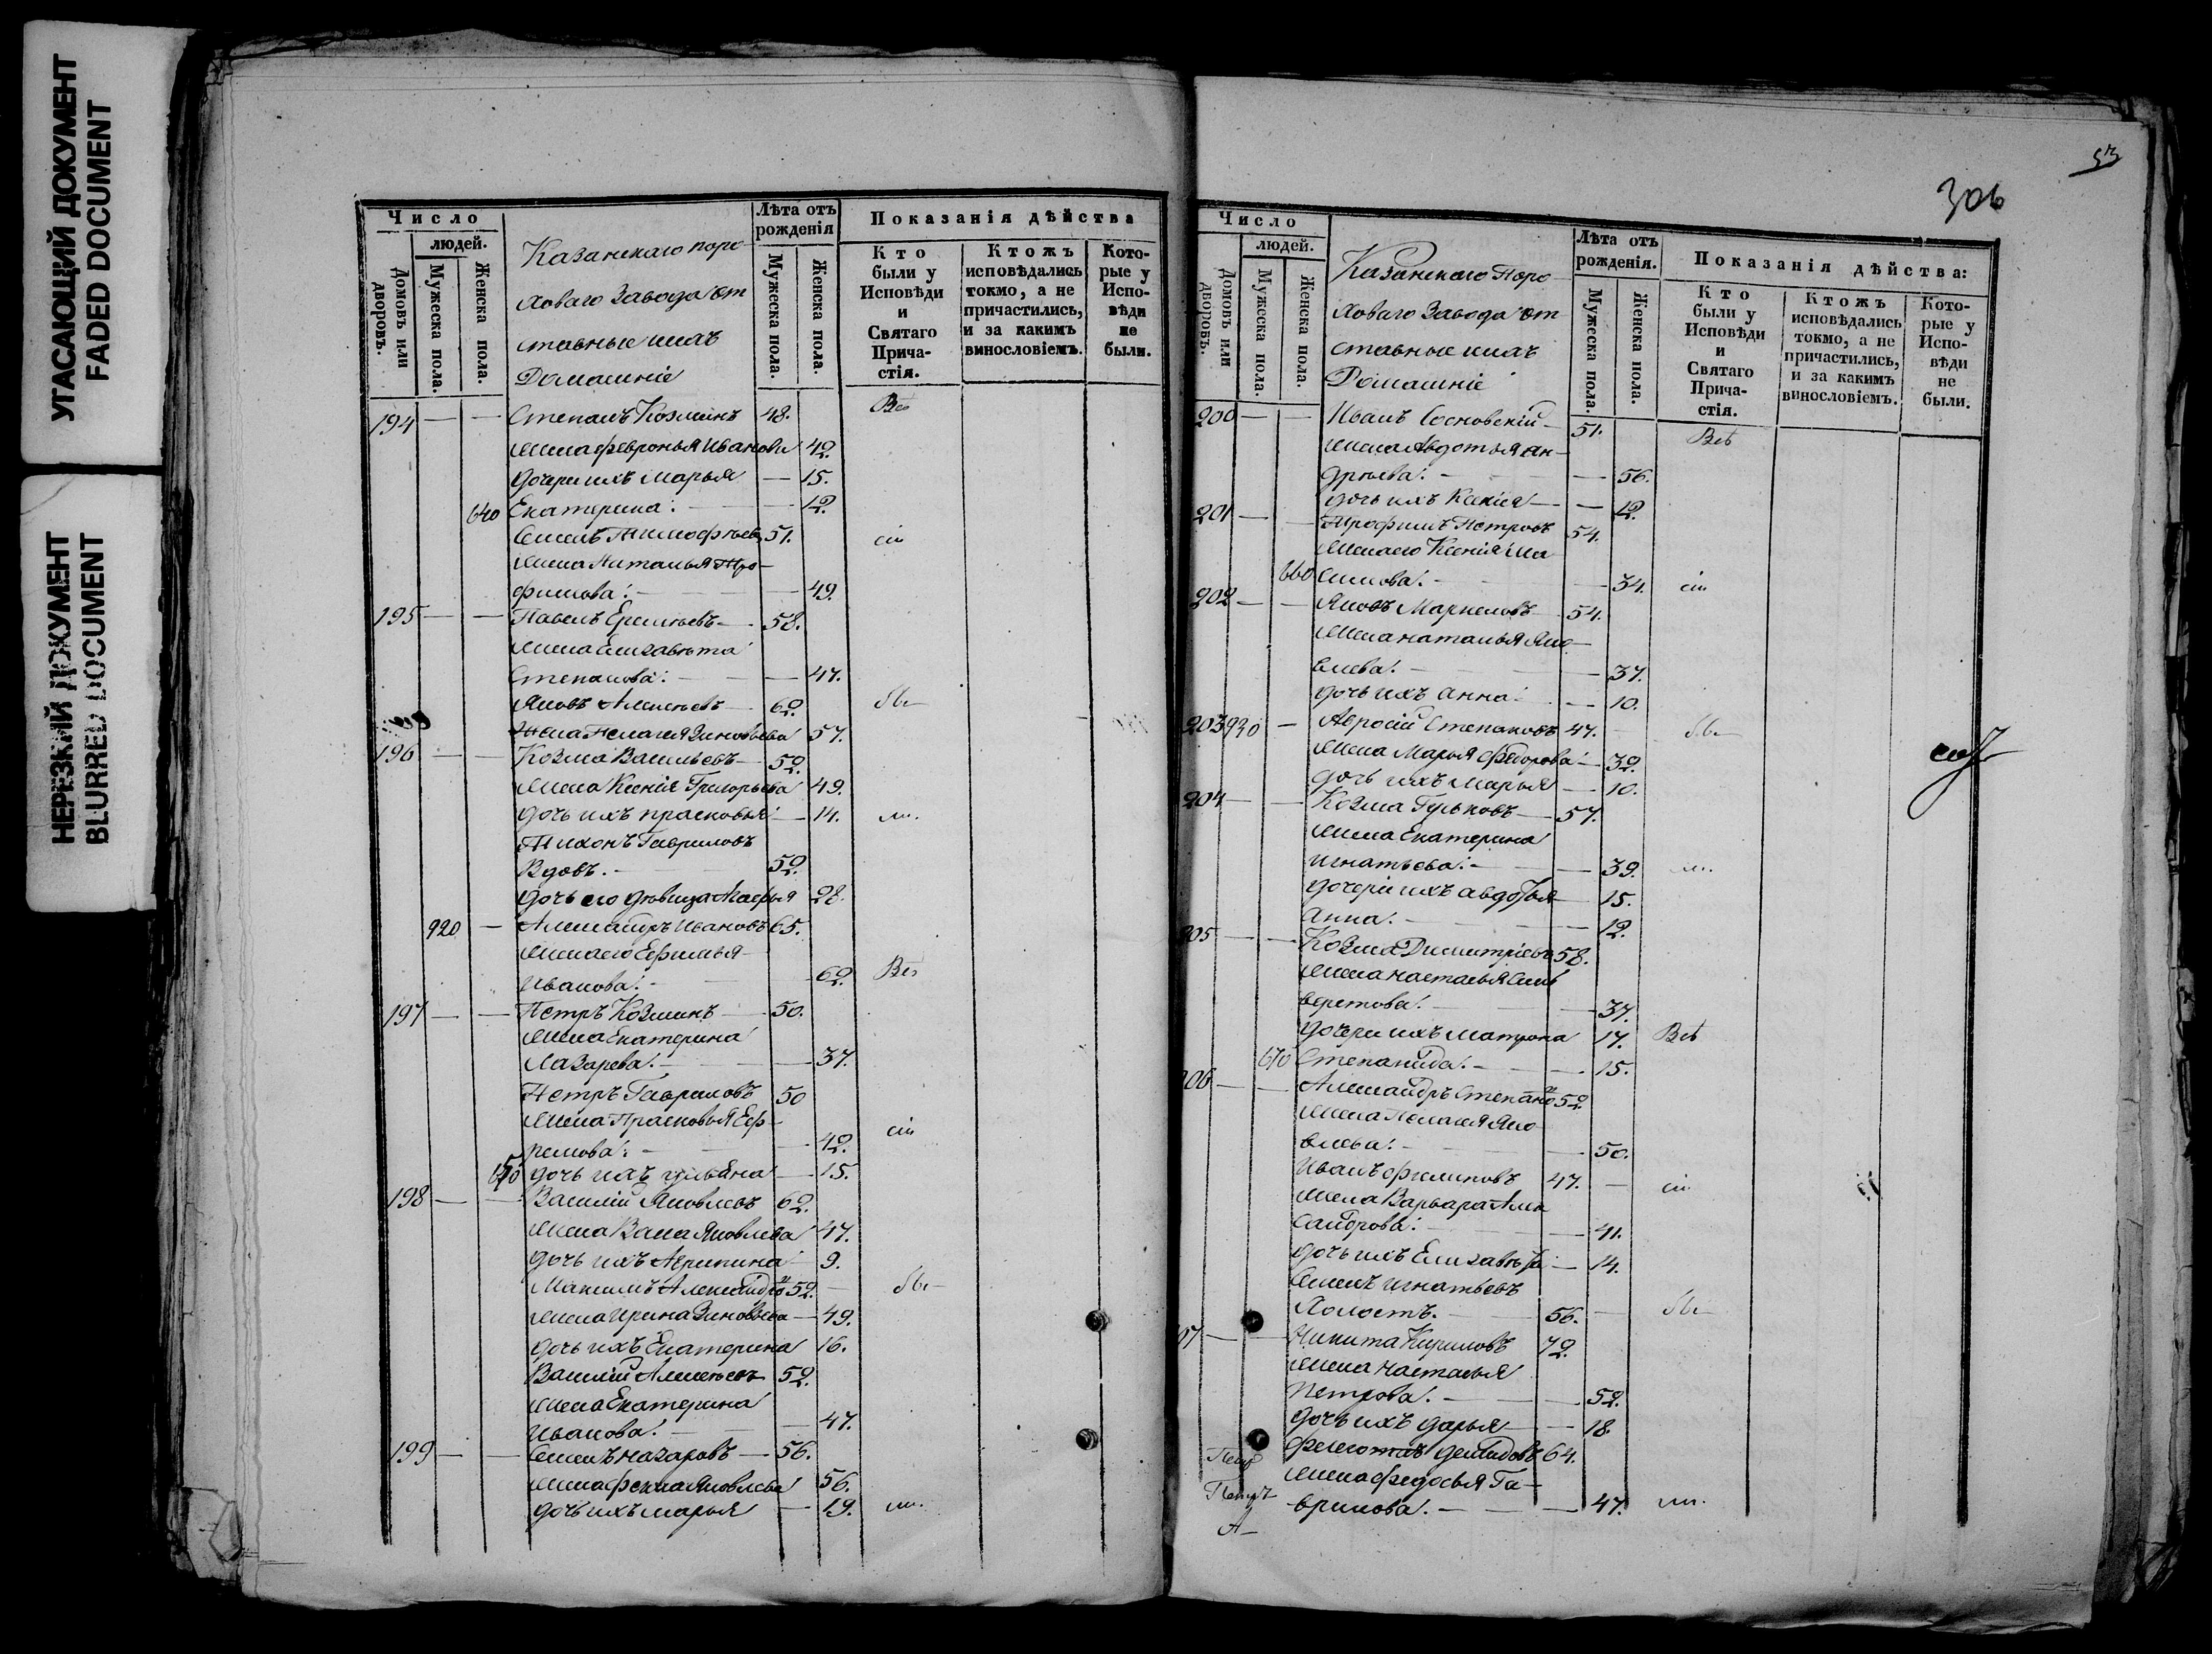 УГАСАЮЩИЙ ДОКУМЕНТ
FADED DOCUMENT
НЕРЕЗКИЙ ДОКУМЕНТ
BLURRED DOCUMENT
Число
людей.
Домовъ или дворовъ.
Мужеска пола.
Женска пола.
Казанскаго поро-
ховаго Завода от
ставные и ихъ
Домашніе
Лѣта отъ рожденія
Мужеска пола.
Женска пола.
Показанія дѣйства
Кто были у Исповѣди и Святаго Прича-стія.
Ктожъ исповѣдались токмо, а не причастились, и за какимъ винословіемъ.
Кото-рые у Испо-вѣди не были.
194 — — Степанъ Козминъ 48. Всѣ
жена февронья Иванова 42.
дочери ихъ марья — 15.
640 Екатерина: — 12.
Семенъ Тимофѣевъ 51. сіи
жена Наталья Тро-
фимова: — 49.
195 — — Павелъ Еремѣевъ — 58.
жена Елизавѣта
Степанова: — 47.
Яковъ Алексѣевъ — 62.
жена Пелагея Зиновьева 57.
196 — — Козма Васильевъ — 52.
жена Ксенія Григорьева 49.
дочь ихъ прасковья — 14.
Тихонъ Гавриловъ
Вдовъ. — 52.
дочь его дѣвица 28.
920 — Александръ Ивановъ 65.
жена его Ефимья
Иванова: — 62. Всѣ
197 — — Петръ Козминъ — 50.
жена Екатерина
Лазарева: — 37.
Петръ Гавриловъ 50
жена Прасковья Еф-
ремова: — 42. сіи
650 дочь ихъ ульяна — 15.
198 — — Василій Яковлевъ 62.
жена Васса Яковлева 47.
дочь ихъ Агрипина 9.
Максимъ Александро 52.
жена Ирина Зиновьева — 49.
дочь ихъ Екатерина 16.
Василій Алексѣевъ 52.
жена Екатерина
Иванова: — 47.
199 — — Семенъ назаровъ — 56.
жена фекла Яковлева 56.
дочь ихъ марья — 19.
306
Число
людей.
Домовъ или дворовъ.
Мужеска пола.
Женска пола.
Казанскаго Поро
ховаго Завода от
ставные и ихъ
Домашніе
Лѣта отъ рожденія.
Мужеска пола.
Женска пола.
Показанія дѣйства:
Кто были у Исповѣди и Святаго Прича-стія.
Ктожъ исповѣдались токмо, а не причастились, и за какимъ винословіемъ.
Кото-рые у Испо-вѣди не были.
200 — — Иванъ Сосновскій — 51. Всѣ
жена Авдотья ан-
дрѣева: — 56.
дочь ихъ Ксенія — 12.
201 — — Трофимъ Петровъ 54.
жена его Ксенія Ма
660 симова: — 34. сіи
202 — — Яковъ Маркеловъ 54.
жена наталья Яко
влева: — 37.
дочь ихъ анна: — 10.
203 930 — Степановъ 47.
жена Марья федорова 32.
дочь ихъ марья — 10.
204 — — Козма Гурьковъ — 57.
жена Екатерина
игнатьева: — 39.
дочери ихъ авдотья 15.
анна: — 12.
205 — — Козма Димитріевъ 58.
жена настасья Сели
верстова: — 37.
дочери ихъ матрона 17. Всѣ
670 Степанида: — 15.
206 — — Александръ Степано 52
жена Пелагея Яко
влева: — 50.
Иванъ филиповъ 47. — сіи
жена Варвара Алек
сандрова: — 41.
дочь ихъ Елизавѣта — 14.
Семенъ игнатьевъ
Холостъ. — 56. —
07 — — Никита Кириловъ 72.
жена настасья
Петрова: — 52.
дочь ихъ дарья — 18.
демидовъ 64.
жена федосья Га-
Петръ
врилова: — 47.